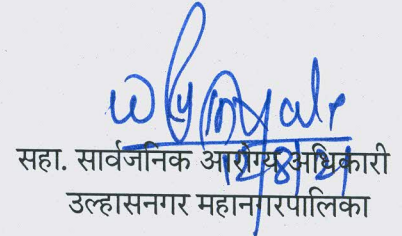 सहा. सार्वजनिक आरोग्य अधिकारी
12/8/21
उल्हासनगर महानगरपालिका